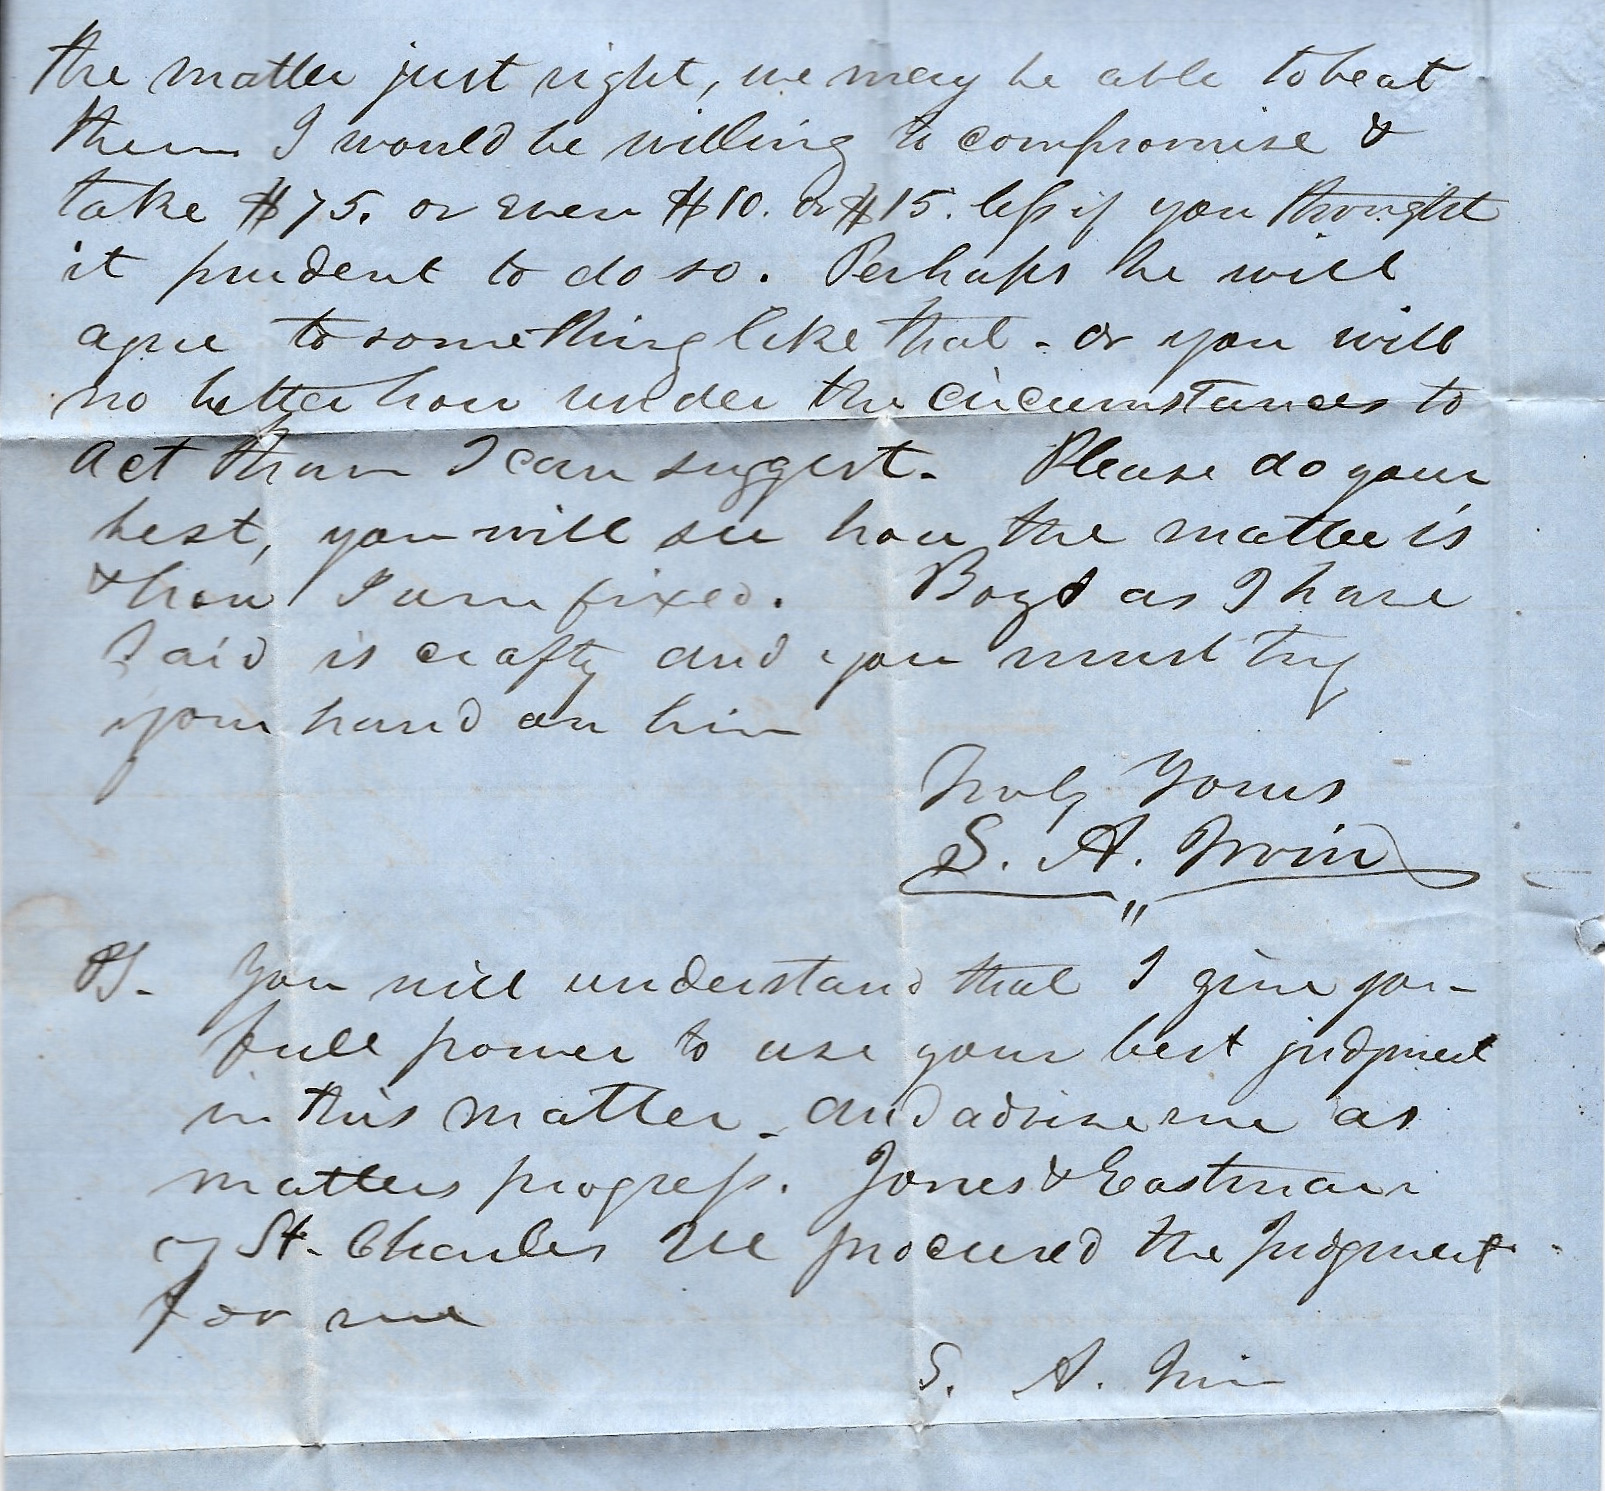 the matter just right, we may be able to beat
them I would be willing to compromise &
take $75. or even $10. or $15. less if you thought
it prudent to do so. Perhaps he will
agree to something like that - or you will
no better how under the circumstances to
act than I can suggest. Please do your
best, you will see how the matter is
& how I am fixed. Boyd as I have
said is crafty and you must try
your hand on him
Truly Yours
S. A. Irvin
"
PS. You will understand that I give you
full power to use your best judgment
in this matter - and advise me as
matters progress. Jones & Eastman
of St. Charles Ill procured the Judgment
for me
S. A. Irvin